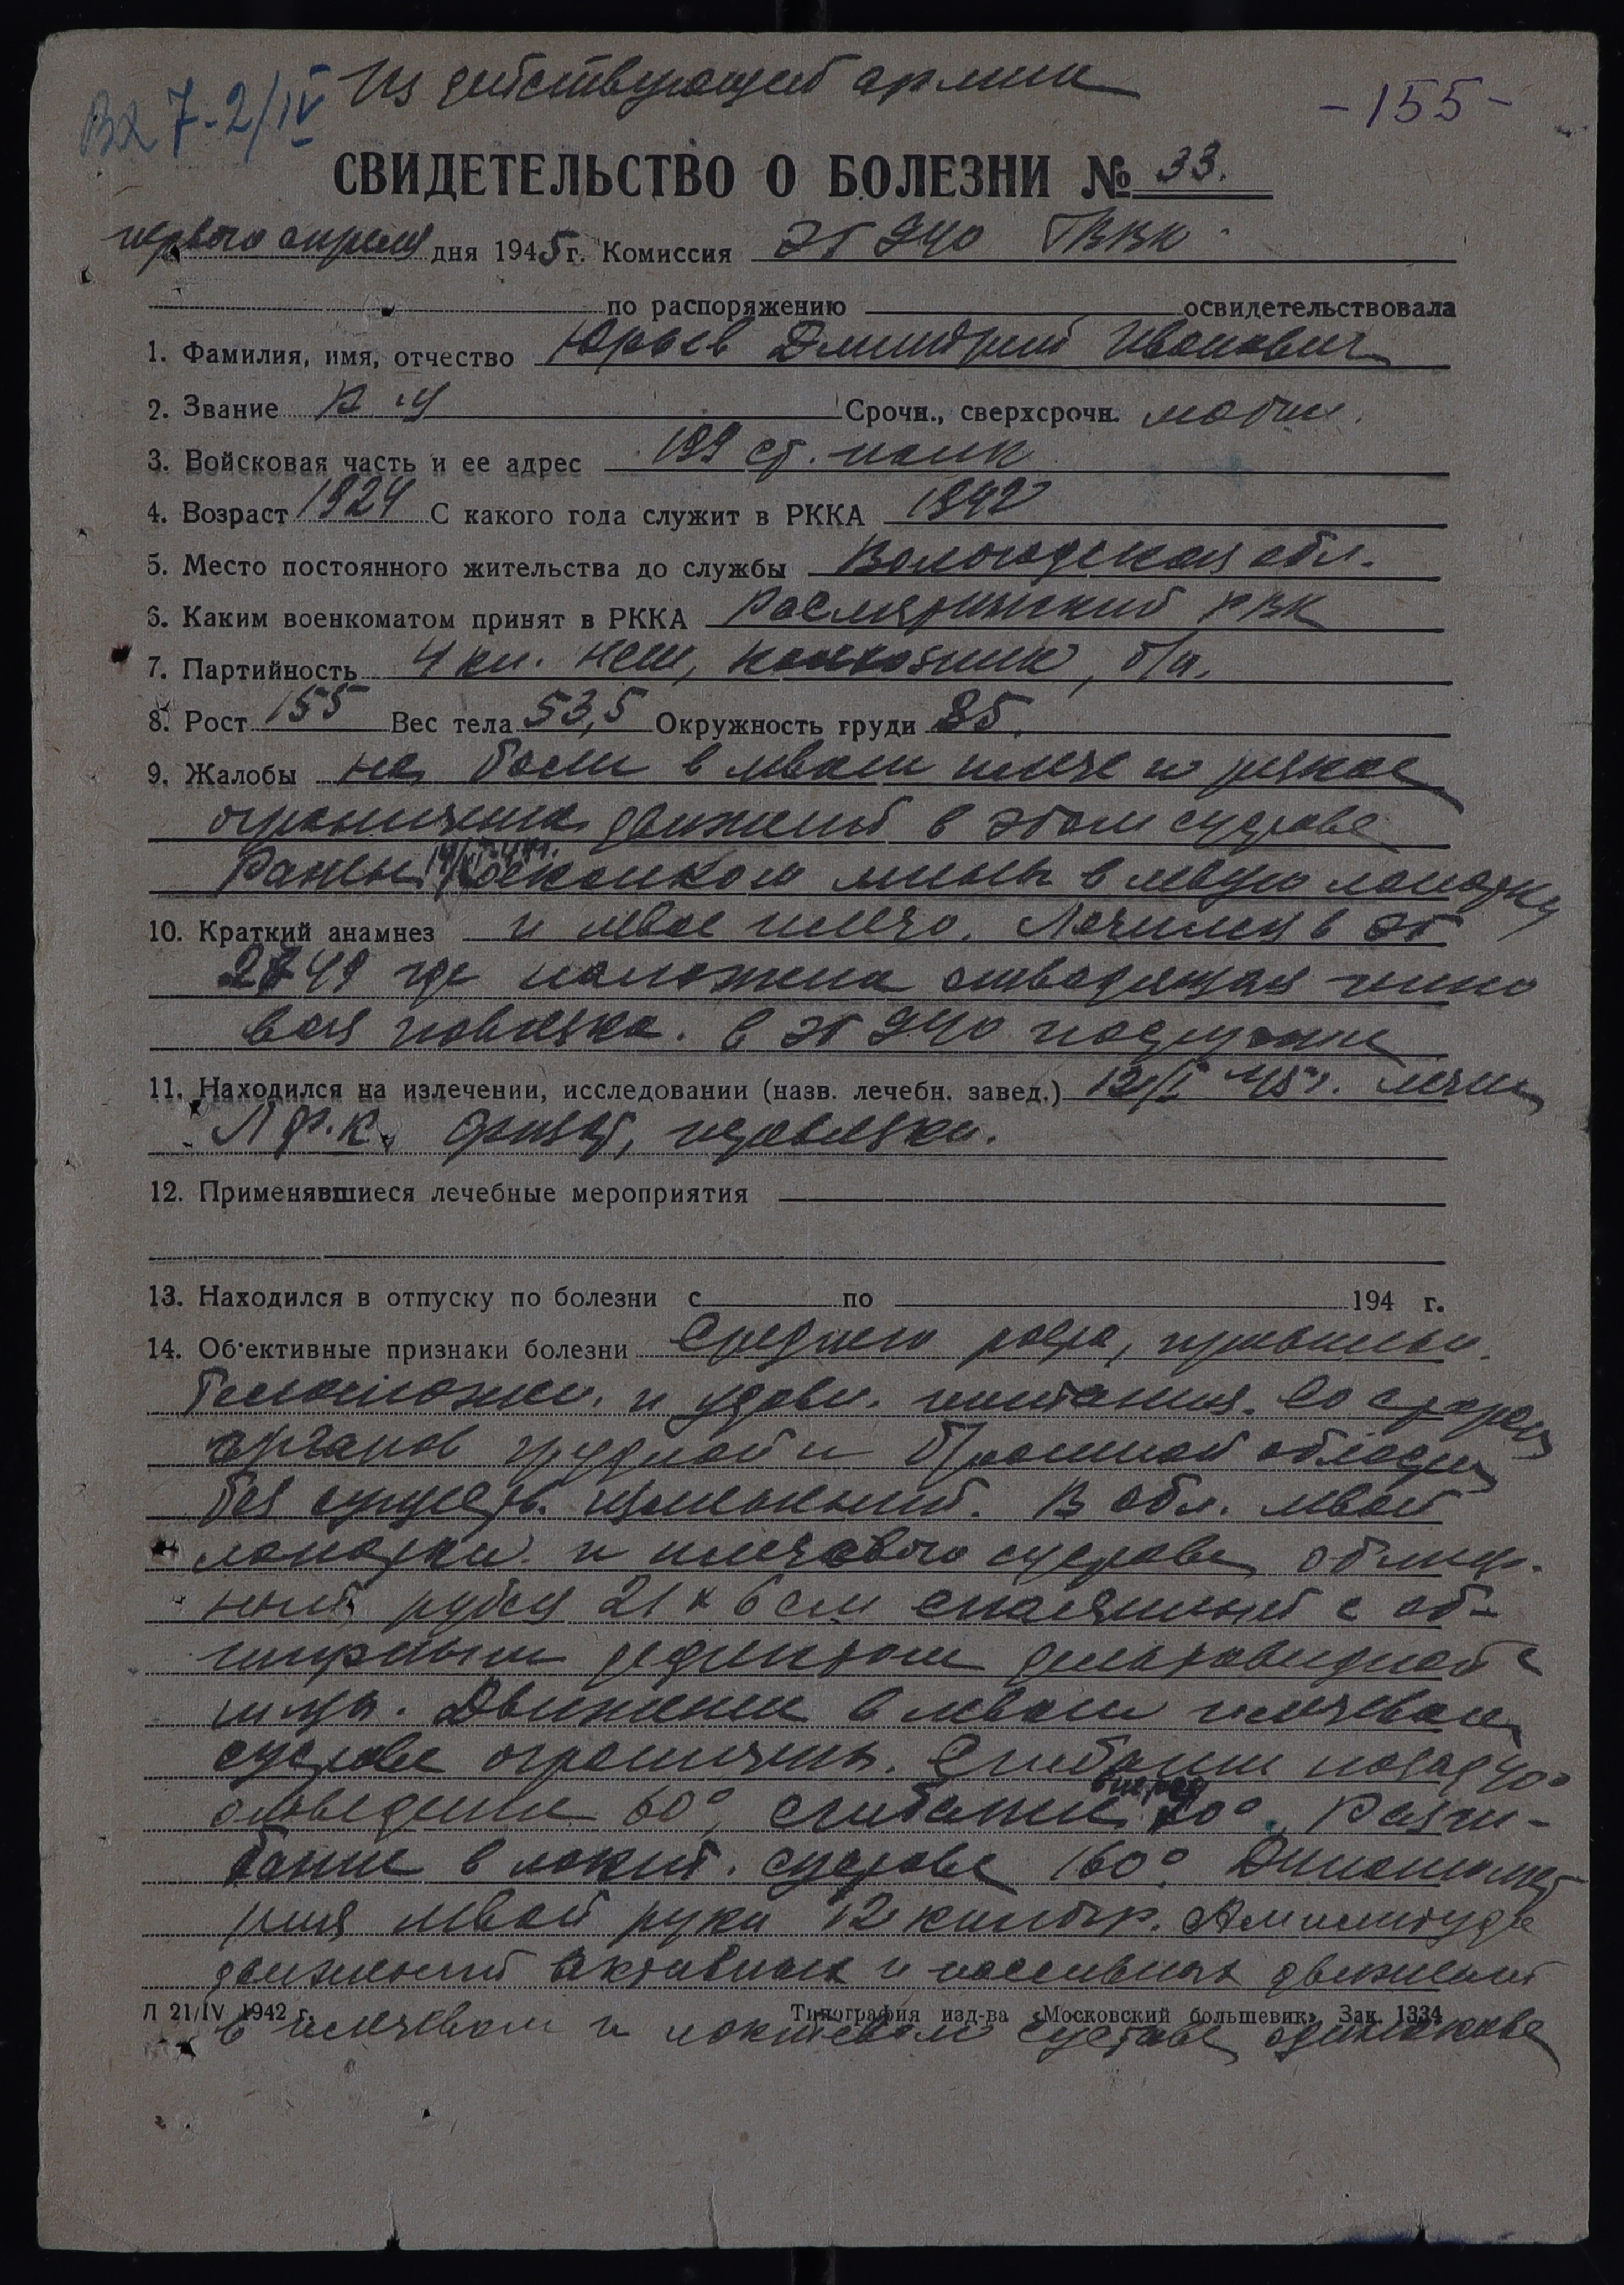 Вх 7-2/IV Из действующей армии
-155-
СВИДЕТЕЛЬСТВО О БОЛЕЗНИ № 33.
первого апреля дня 1945 г. Комиссия ЭГ ГВВК
по распоряжению освидетельствовала
1. Фамилия, имя, отчество Юрьев Дмитрий Иванович
2. Звание Срочн., сверхсрочн. мобил.
3. Войсковая часть и ее адрес 199 ст. полк
4. Возраст 1924 С какого года служит в РККА 1942
5. Место постоянного жительства до службы Вологодская обл.
6. Каким военкоматом принят в РККА Рослятинский РВК
7. Партийность 4 кл. НСШ, колхозник, б/п.
8. Рост 155 Вес тела 53,5 Окружность груди 85.
9. Жалобы на боли в левом плече и резкое
ограничение движений в этом суставе
Ранен осколком мины в левую лопатку
10. Краткий анамнез и левое плечо. Лечился в ЭГ
2749 где наложена отводящая гипсо
вая повязка. В ЭГ поступил
11. Находился на излечении, исследовании (назв. лечебн. завед.) 12/I 45 г. лечен
ЛФК, физиот, перевязки.
12. Применявшиеся лечебные мероприятия
13. Находился в отпуску по болезни с по 194 г.
14. Об'ективные признаки болезни Среднего роста, правильн.
телосложен. и удовл. питания. Со стороны
органов грудной и брюшной области
без существ. изменений. В обл. левой
лопатки и плечевого сустава обшир-
ный рубец 21 х 6 см спаянный с об-
ширным дефектом дельтовидной
мышцы. Движение в левом плечевом
суставе ограничены. Сгибание назад 40°
отведение 60°, сгибание вперед 70°. Разги-
бание в локт. суставе 160°. Динамомет
рия левой руки 12 килогр. Амплитуда
движений активных и пассивных движений
Л 21/IV 1942 г. Типография изд-ва «Московский большевик» Зак. 1334
в плечевом и локтевом суставе одинакова